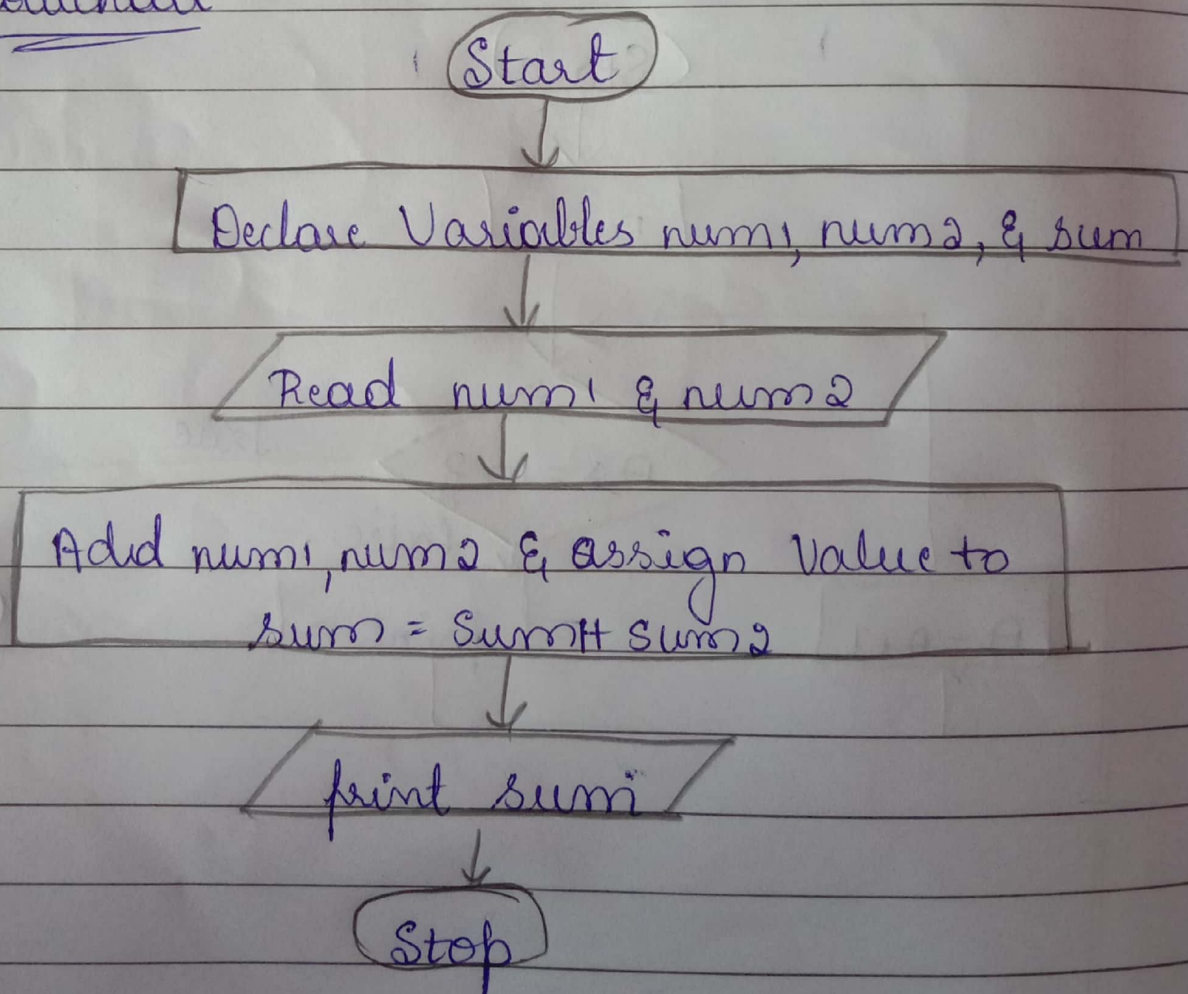 Start
Declare Variables num1, num2, & sum
Read num1 & num2
Add num1, num2 & assign value to
sum = sum1+ sum2
print sum
Stop